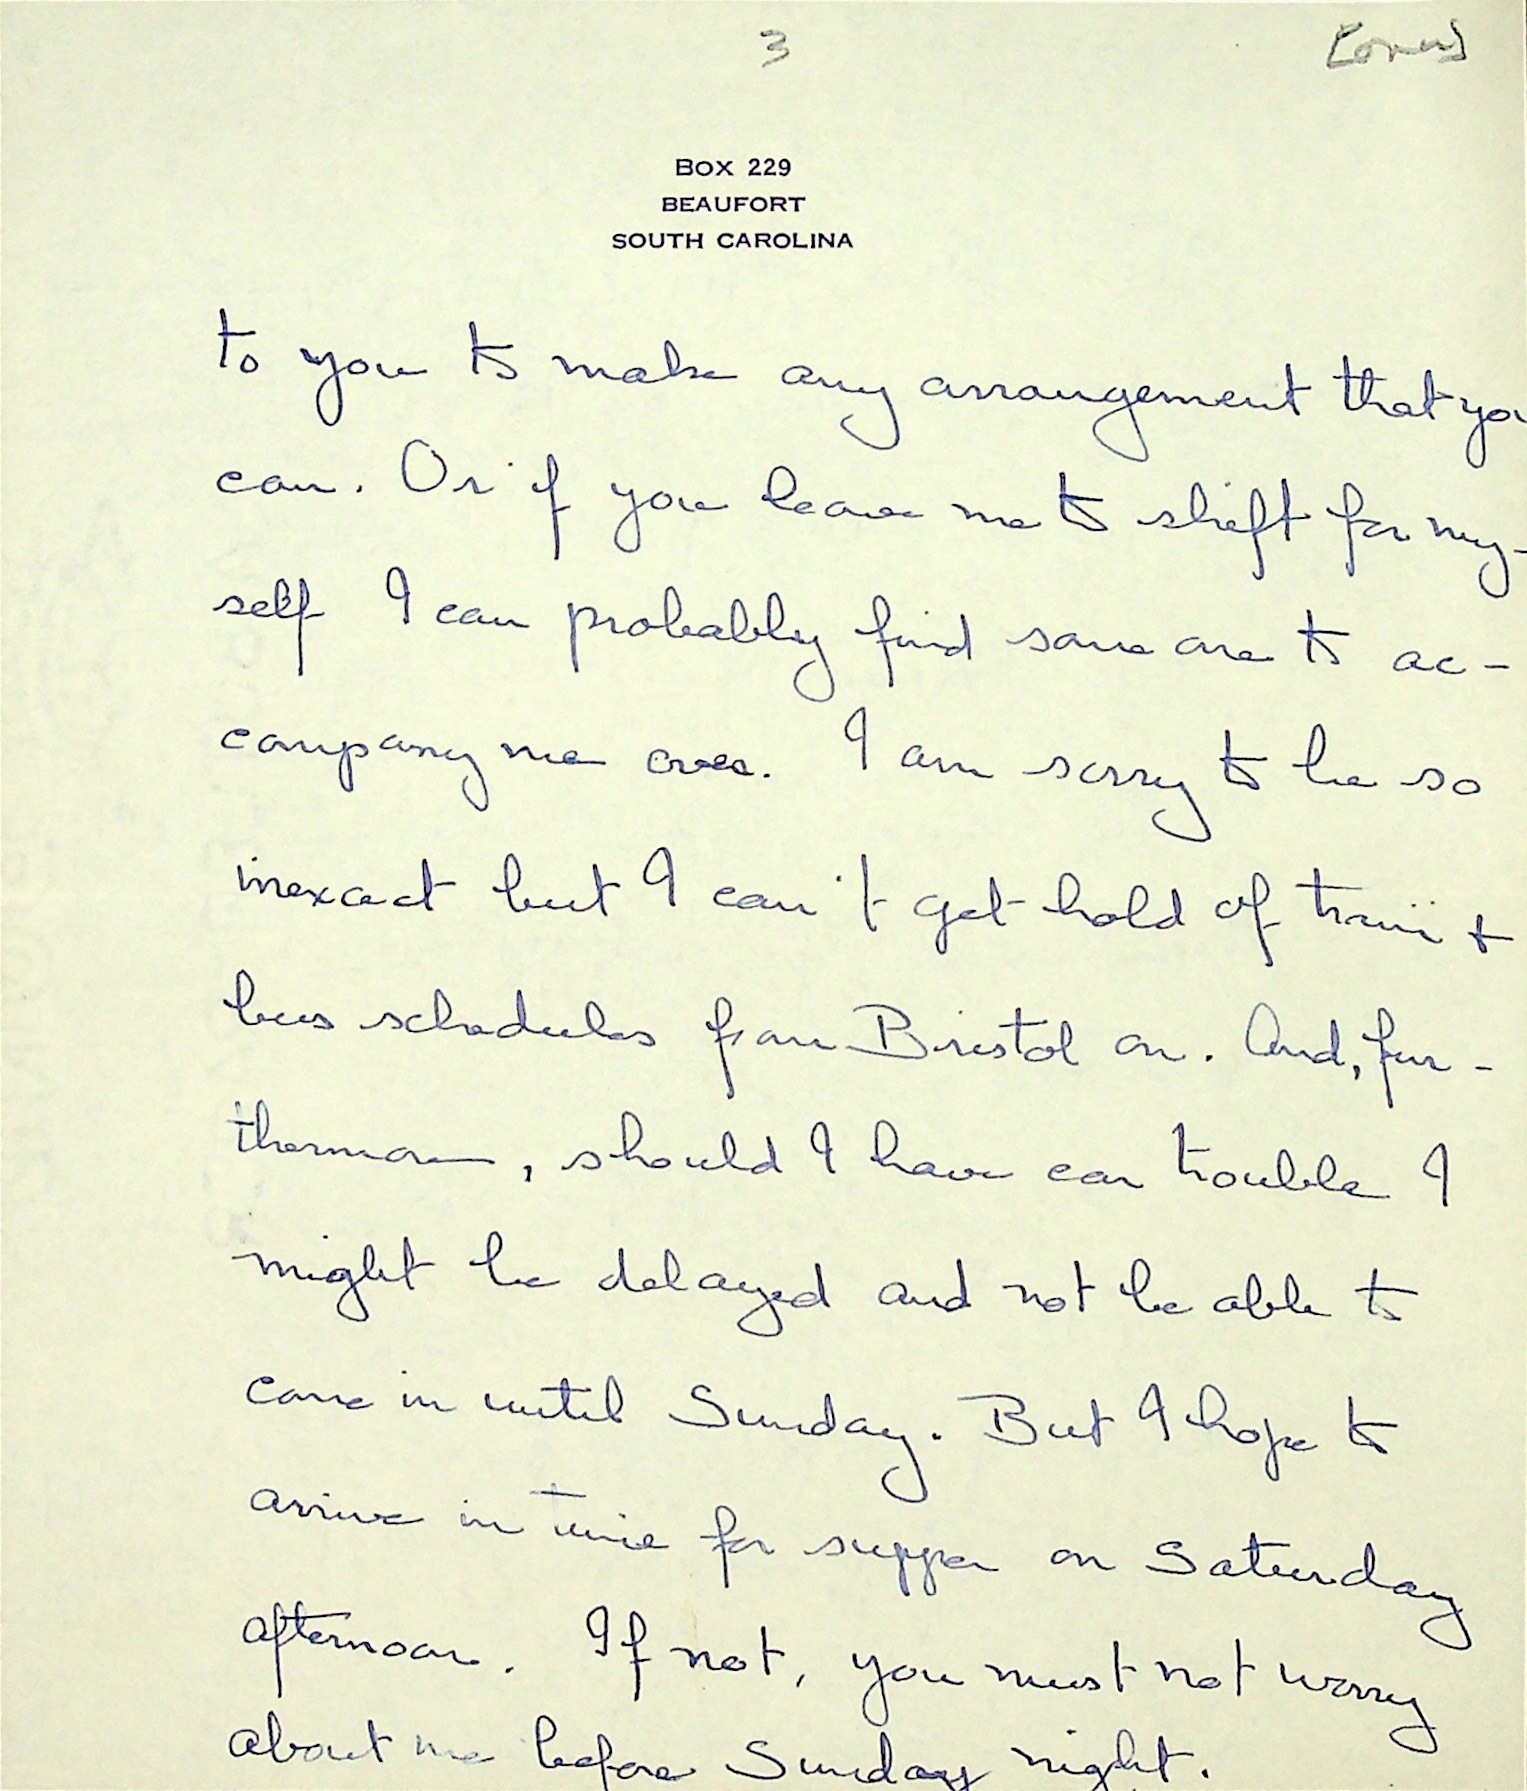 3 [over]
BOX 229
BEAUFORT
SOUTH CAROLINA
to you to make any arrangement that you
can. Or if you leave me to shift for my-
self I can probably find some one to ac-
company me over. I am sorry to be so
inexact but I can't get hold of train +
bus schedules from Bristol on. And, fur-
thermore, should I have car trouble I
might be delayed and not be able to
come in until Sunday. But I hope to
arrive in time for supper on Saturday
afternoon. If not, you must not worry
about me before Sunday night.